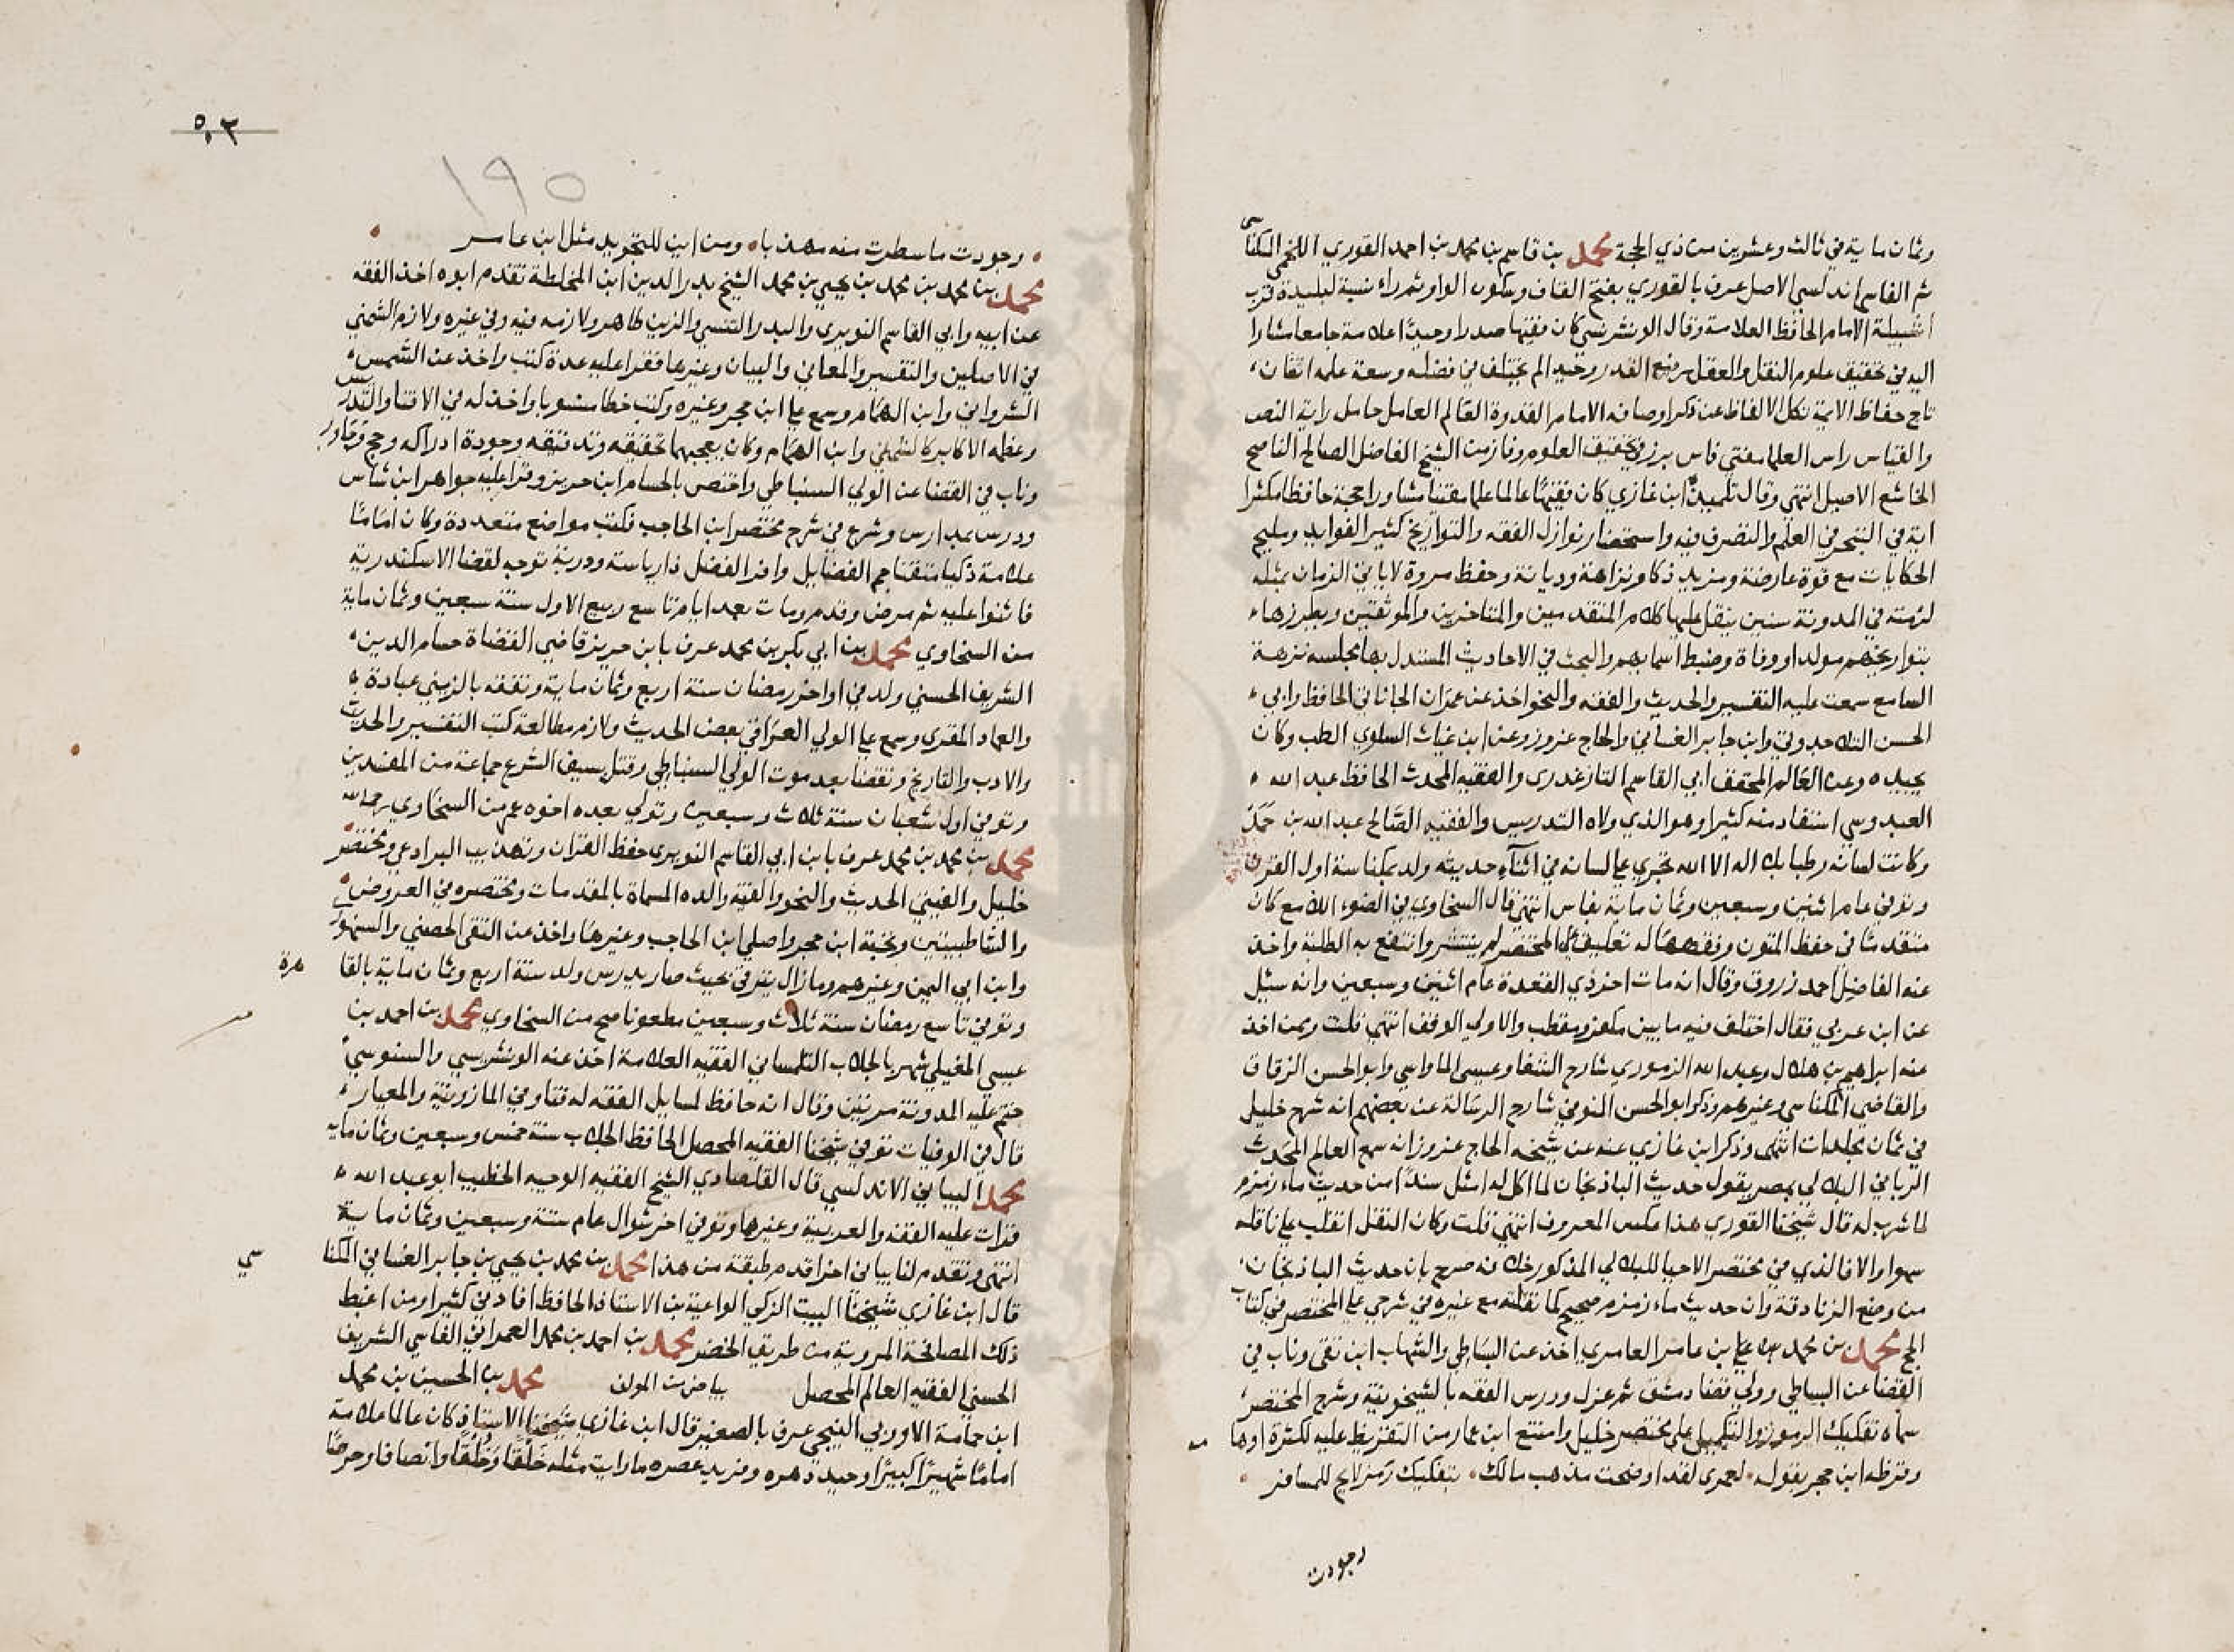 وثمان ماية في ثالث وعشرين من ذي الحجة محمد بن قاسم بن محمد بن احمد القوري اللخمي المكناسي
ثم الفاسي اندلسي الاصل عرف بالقوري بفتح القاف وسكون الواو ثم راء نسبة لبليدة قرب
اشبيلة الامام الحافظ العلامة وقال الونشريسي كان فقيها صدرا وحيدا علامة جامعا مشارا
اليه في تحقيق علوم النقل والعقل رفيع القدر وحيدا لم يختلف في فضله وسعة علمه اتقان
تاج حفاظ الايمة تكل الالفاظ عن ذكر اوصافه الامام القدوة العالم العامل حامل راية النص
والقياس راس العلما مفتي فاس برز في تحقيق العلوم وفاز من الشيخ الفاضل الصالح الناصح
الخاشع الاصيل انتهى وقال تلميذه ابن غازي كان فقيها عالما علما مفتنا مشاورا حجة حافظا مكثرا
اية في التبحر في العلم والتصرف فيه واستحضار نوازل الفقه والتواريخ كثير الفوايد ومليح
الحكايات مع قوة عارضة ومزيد ذكا ونزاهة وديانة وحفظ مروة لا ياتي الزمان بمثله
لزمته في المدونة سنين ينقل عليها كلام المتقدمين والمتاخرين والموثقين ويطرزها
بتواريخهم مولدا ووفاة وضبط اسمايهم والبحث في الاحاديث المستدل بها مجلسه نزهة
السامع سمعت عليه التفسير والحديث والفقه والنحو اخذ عن عمران الجاناتي الحافظ وابي
الحسن التلاجدوتي وابن جابر الغساني والحاج عزوز وعن ابن غياث السلوي الطب وكان
يجيده وعن العالم المحقق ابي القاسم التازغدري والفقيه المحدث الحافظ عبد الله
العبدوسي استفاد منه كثيرا وهو الذي ولاه التدريس والفقيه الصالح عبد الله بن حمد
وكانت لسانه رطبا بلا اله الا الله تجري على لسانه في اثناء حديثه ولد بمكناسة اول القرن
وتوفي عام اثنين وسبعين وثمان ماية بفاس انتهى قال السخاوي في الضوء اللامع كان
متقدما في حفظ المتون وفقهها له تعليق على المختصر لم ينتشر وانتفع به الطلبة واخذ
عنه الفاضل احمد زروق وقال انه مات اخر ذي القعدة عام اثنين وسبعين وانه سئل
عن ابن عربي فقال اختلف فيه ما بين مكفر ومقطب والاولي الوقف انتهى قلت وممن اخذ
عنه ابراهيم بن هلال وعبد الله الزموري شارح الشفا وعيسى الماواسي وابو الحسن الزقاق
والقاضي المكناسي وغيرهم وذكر ابو الحسن المنوفي شارح الرسالة عن بعضهم انه شرح خليل
في ثمان مجلدات انتهى وذكر ابن غازي عنه عن شيخه الحاج عزوز انه سمع العالم المحدث
الرباني البلالي بمصر يقول حديث الباذنجان لما اكل له امثل سندا من حديث ماء زمزم
لما شرب له قال شيخنا القوري هذا عكس المعروف انتهى قلت وكان النقل انقلب على ناقله
سهوا والا فالذي في مختصر الاحيا للبلالي المذكور خلافه صرح بان حديث الباذنجان
من وضع الزنادقة وان حديث ماء زمزم صحيح كما نقلته مع غيره في شرحي على المختصر في كتاب
الحج محمد بن محمد بن علي بن عامر العامري اخذ عن البساطي والشهاب ابن تقي وناب في
القضا عن البساطي وولي قضا دمشق ثم عزل ودرس الفقه بالشيخونية وشرح المختصر
سماه تفكيك الرموز والتكميل على مختصر خليل وامتنع ابن عمار من التقريظ عليه لكثرة اوهامه
وقرظه ابن حجر بقوله لعمري لقد اوضحت مذهب مالك بتفكيك رمز لايح للمسافر
وجودت
٥٠٢
١٩٥
وجودت ما سطرت منه مهذبا ومن اين للتجويد مثل ابن عامر
محمد بن محمد بن محمد بن يحيي بن محمد الشيخ بدر الدين ابن المخلطة تقدم ابوه اخذ الفقه
عن ابيه وابي القاسم النويري والبدر التنسي والزين طاهر ولازمه فيه وفي غيره ولازم الشمني
في الاصلين والتفسير والمعاني والبيان وغيرها فقرا عليه عدة كتب واخذ عن الشمس
الشرواني وابن الهمام وسمع على ابن حجر وغيره وكتب خطا منسوبا واخذ له في الافتا والتدريس
وعظمه الاكابر كالشمني وابن الهمام وكان يعجبهما تحقيقه وتدقيقه وجودة ادراكه وحج وجاور
وناب في القضا عن الولي السنباطي واختص بالحسام ابن حريز وقرا عليه جواهر ابن شاس
ودرس بمدارس وشرع في شرح مختصر ابن الحاجب فكتب مواضع متعددة وكان اماما
علامة ذكيا متفننا جم الفضايل وافر الفضل ذا رياسة ودربة توجه لقضا الاسكندرية
فاثنوا عليه ثم مرض وقدم ومات بعد ايام تاسع ربيع الاول سنة سبعين وثمان ماية
من السخاوي محمد بن ابي بكر بن محمد عرف بابن حريز قاضي القضاة حسام الدين
الشريف الحسني ولد في اواخر رمضان سنة اربع وثمان ماية وتفقه بالزيني عبادة
والعماد المقري وسمع على الولي العراقي بعض الحديث ولازم مطالعة كتب التفسير والحديث
والادب والتاريخ وتقضا بعد موت الولي السنباطي وقتل بسيف الشرع جماعة من المفسدين
وتوفي اول شعبان سنة ثلاث وسبعين وتولي بعده اخوه عمر من السخاوي رحمه الله
محمد بن محمد بن محمد عرف بابن ابي القاسم النويري حفظ القران وتهذيب البرادعي ومختصر
خليل والفيتي الحديث والنحو والفية والده المسماة بالمقدمات ومختصره في العروض
والشاطبيتين ونخبة ابن حجر واصلي ابن الحاجب وغيرها واخذ عن التقي الحصني والسنهوري
وابن ابي اليمن وغيرهم وما زال يترقى بحيث صار يدرس ولد سنة اربع وثمان ماية بالقاهرة
وتوفي تاسع رمضان سنة ثلاث وسبعين مطعونا صح من السخاوي محمد بن احمد بن
عيسى المغيلي شهر بالجلاب التلمساني الفقيه العلامة اخذ عنه الونشريسي والسنوسي
ختم عليه المدونة مرتين وقال انه حافظ لمسايل الفقه له فتاو في المازونية والمعيار
قال في الوفيات توفي شيخنا الفقيه المحصل الحافظ الجلاب سنة خمس وسبعين وثمان مايه
محمد البياني الاندلسي قال القلصادي الشيخ الفقيه الوجيه الخطيب ابو عبد الله
قرات عليه الفقه والعربية وغيرها وتوفي اخر شوال عام ستة وسبعين وثمان ماية
انتهى وتقدم لنا بياني اخر اقدم طبقة من هذا محمد بن محمد بن يحيي بن جابر الغساني المكناسي
قال ابن غازي شيخنا البيت الزكي الواعية بن الاستاذ الحافظ افادني كثيرا ومن اغبط
ذلك المصافحة المروية من طريق الخضر محمد بن احمد بن محمد العمراني الفاسي الشريف
الحسني الفقيه العالم المحصل بياض من المولف محمد بن الحسين بن محمد
ابن حمامة الاوربي النيجي عرف بالصغير قال ابن غازي شيخنا الاستاذ كان عالما علامة
اماما شهيرا كبيرا وحيد دهره وفريد عصره ما رايت مثله خلقا وخلقا وانصافا وحرصا